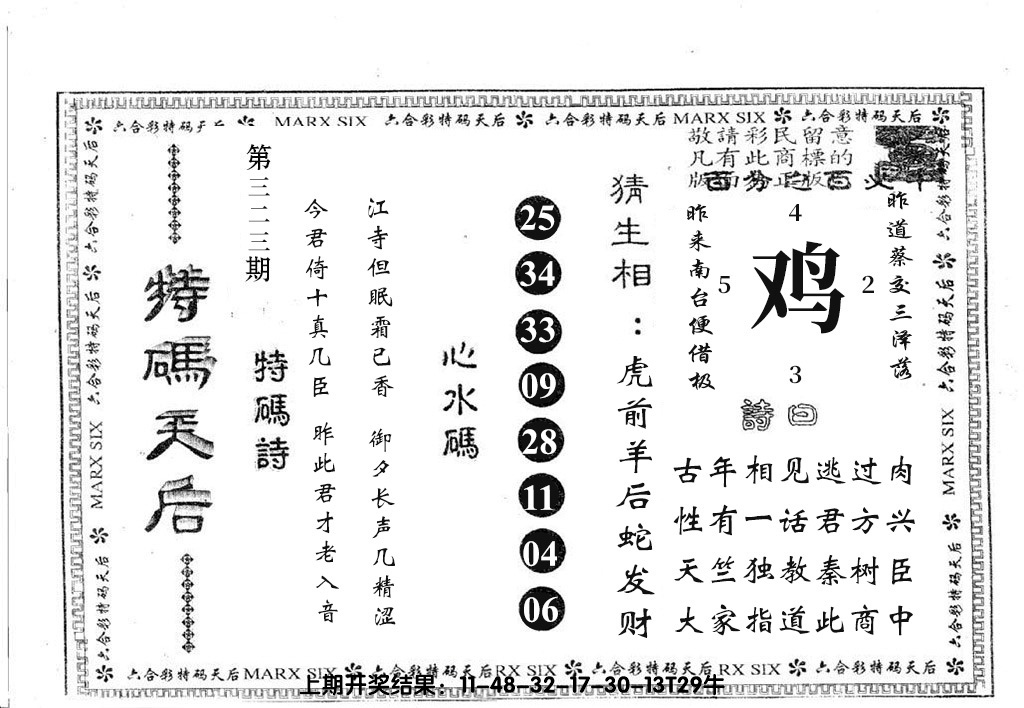 六合彩特码天后 MARX SIX 六合彩特码天后 六合彩特码天后 MARX SIX 六合彩特码天后
敬請彩民留意
凡有此商標的
版面为正版
昨道蔡亥三泽落
4
5
鸡
2
3
昨来南台便借极
詩曰
古年相见逃过肉
性有一话君方兴
天竺独教秦树臣
大家指道此商中
猜生相：虎前羊后蛇发财
25
34
33
09
28
11
04
06
心水碼
江寺但眠霜已香 御夕长声几精涩
今君倚十真几臣 昨此君才老入音
特碼詩
第三二三期
特碼天后
六合彩特码天后 MARX SIX 六合彩特码天后
六合彩特码天后 MARX SIX 六合彩特码天后
六合彩特码天后 MARX SIX 六合彩特码天后 RX SIX 六合彩特码天后 RX SIX 六合彩特码天后
上期开奖结果：11-48-32-17-30-13T29牛